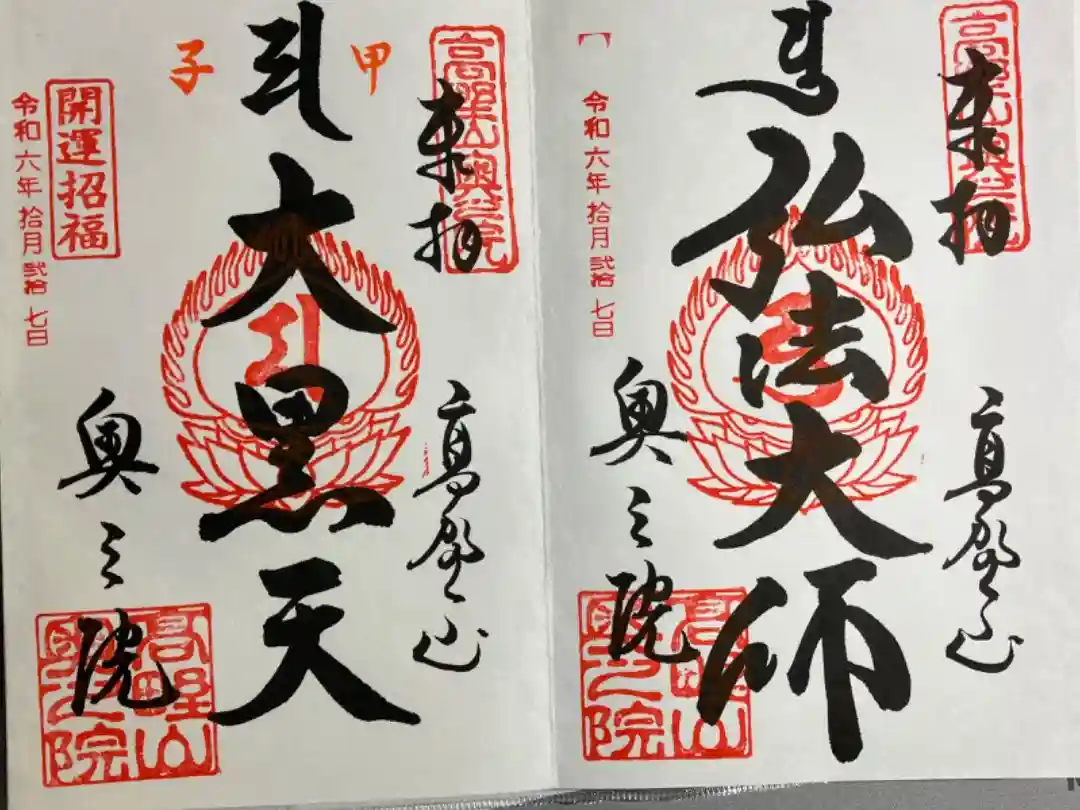 高野山奥之院
奉拝
高野山
弘法大師
奥之院
令和六年拾月弐拾七日
高野山
奥之院
高野山奥之院
奉拝
高野山
甲
大黒天
子
奥之院
開運招福
令和六年拾月弐拾七日
高野山
奥之院